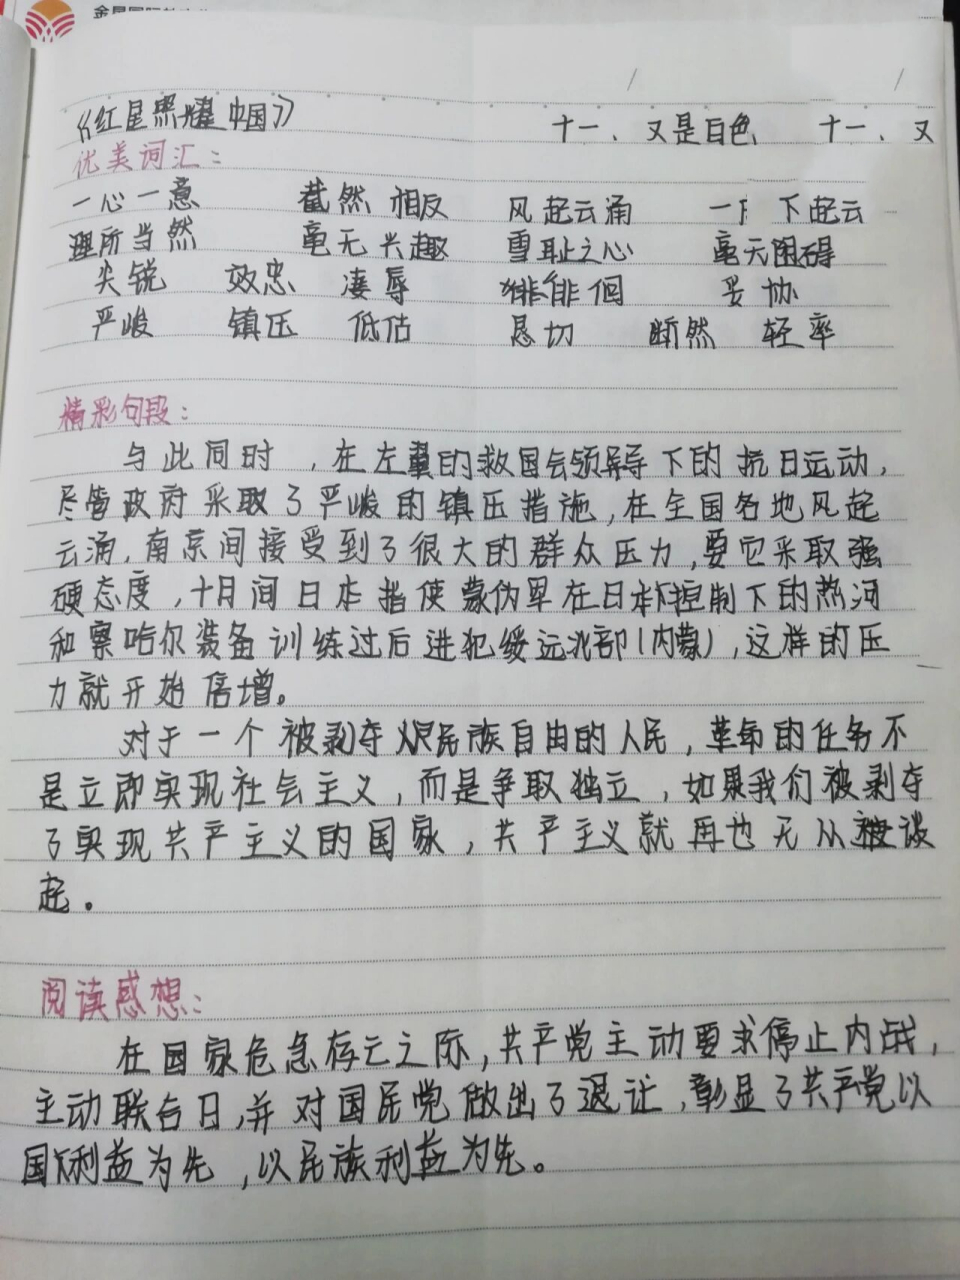 《红星照耀中国》 十一、又是白色 十一、又
优美词汇：
一心一意 截然相反 风起云涌 一 下起云
理所当然 毫无兴趣 雪耻之心 毫无阻碍
尖锐 效忠 凄辱 徘徊 妥协
严峻 镇压 低估 恳切 断然 轻率
精彩句段：
与此同时，在左翼的救国会领导下的抗日运动，
尽管政府采取了严峻的镇压措施，在全国各地风起
云涌，南京间接受到了很大的群众压力，要它采取强
硬态度，十月间日本指使蒙伪军在日本控制下的热河
和察哈尔装备训练过后进犯绥远北部（内蒙），这样的压
力就开始倍增。
对于一个被剥夺民族自由的人民，革命的任务不
是立即实现社会主义，而是争取独立，如果我们被剥夺
了实现共产主义的国家，共产主义就再也无从谈
起。
阅读感想：
在国家危急存亡之际，共产党主动要求停止内战，
主动联合日，并对国民党做出了退让，彰显了共产党以
国利益为先，以民族利益为先。